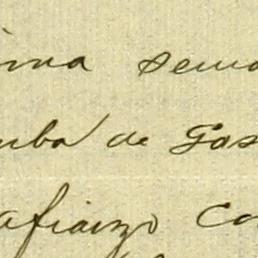 ima sema
mba de Gas
afianzo co